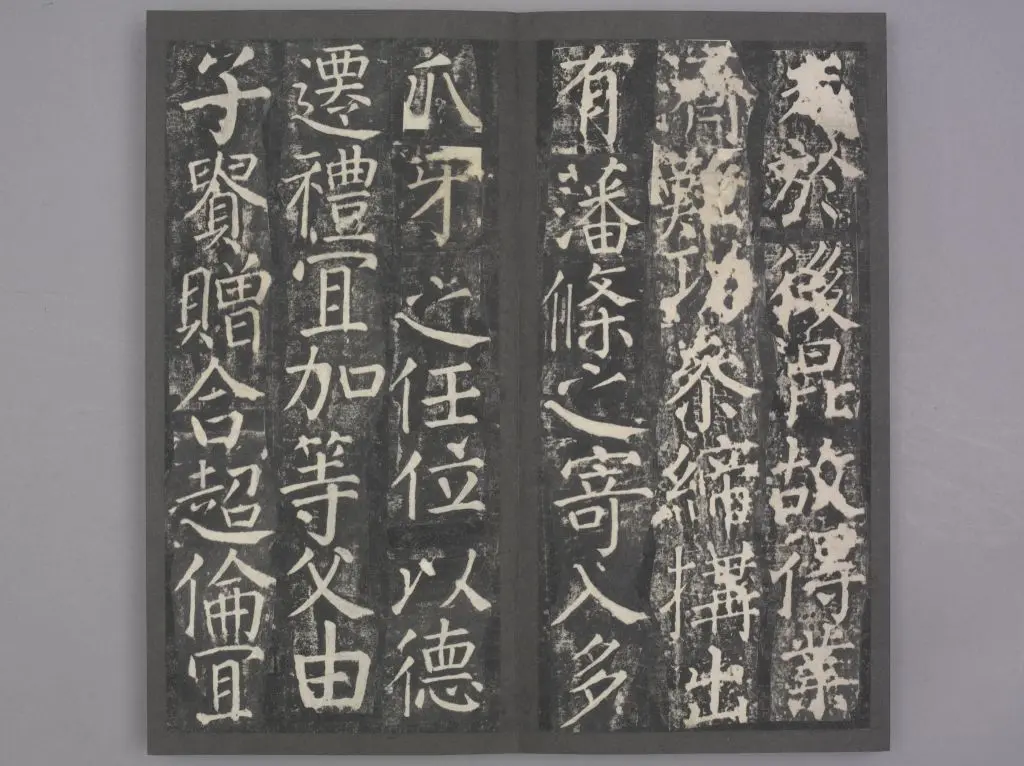 於後昆故得業
濟難功參締搆出
有藩條之寄入多
爪牙之任位以德
遷禮宜加等父由
子貴贈合超倫宜